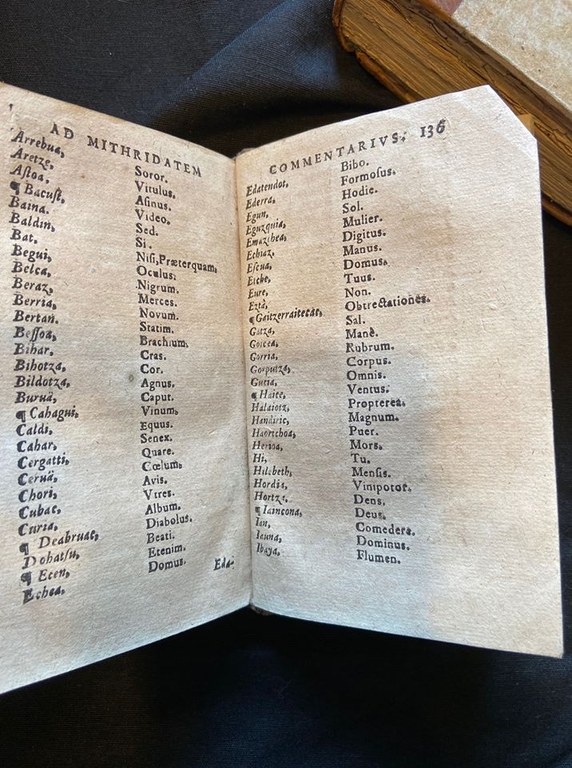 AD MITHRIDATEM
Arrebua, Soror.
Aretze, Vitulus.
Aſtoa, Aſinus.
¶ Bacuſt, Video.
Baina. Sed.
Baldin, Si.
Bat. Niſi,Præterquam,
Begui, Oculus.
Belca, Nigrum.
Beraz, Merces.
Berria, Novum.
Bertan. Statim.
Beſſoa, Brachium.
Bihar, Cras.
Bihotza, Cor.
Bildotza, Agnus.
Buruä, Caput.
¶ Cahagui, Vinum.
Caldi, Equus.
Cahar, Senex.
Cergatti, Quare.
Ceruä, Cœlum.
Chori, Avis.
Cubac, Vtres.
Curia, Album.
¶ Deabruac, Diabolus.
Dohatſu, Beati.
¶ Ecen, Etenim.
Echea. Domus.
Eda-
COMMENTARIVS. 136
Edatendot, Bibo.
Ederra, Formoſus.
Egun, Hodie.
Eguzquia, Sol.
Emazthea, Mulier.
Ethiaz, Digitus.
Eſcua, Manus.
Etche, Domus.
Eure, Tuus.
Eztä, Non.
¶ Gaitzerraitecac, Obtrectationes.
Gatza, Sal.
Goicea, Manè.
Gorria, Rubrum.
Gorputza, Corpus.
Gucia, Omnis.
¶ Haice, Ventus.
Halaiotz, Propterea.
Handiric, Magnum.
Haurtchoa, Puer.
Herioa, Mors.
Hi, Tu.
Hilebeth, Menſis.
Hordis, Vinipotor.
Hortze, Dens.
¶ Iaincoa, Deus.
Ian, Comedere.
Iauna, Dominus.
Ibaya, Flumen.